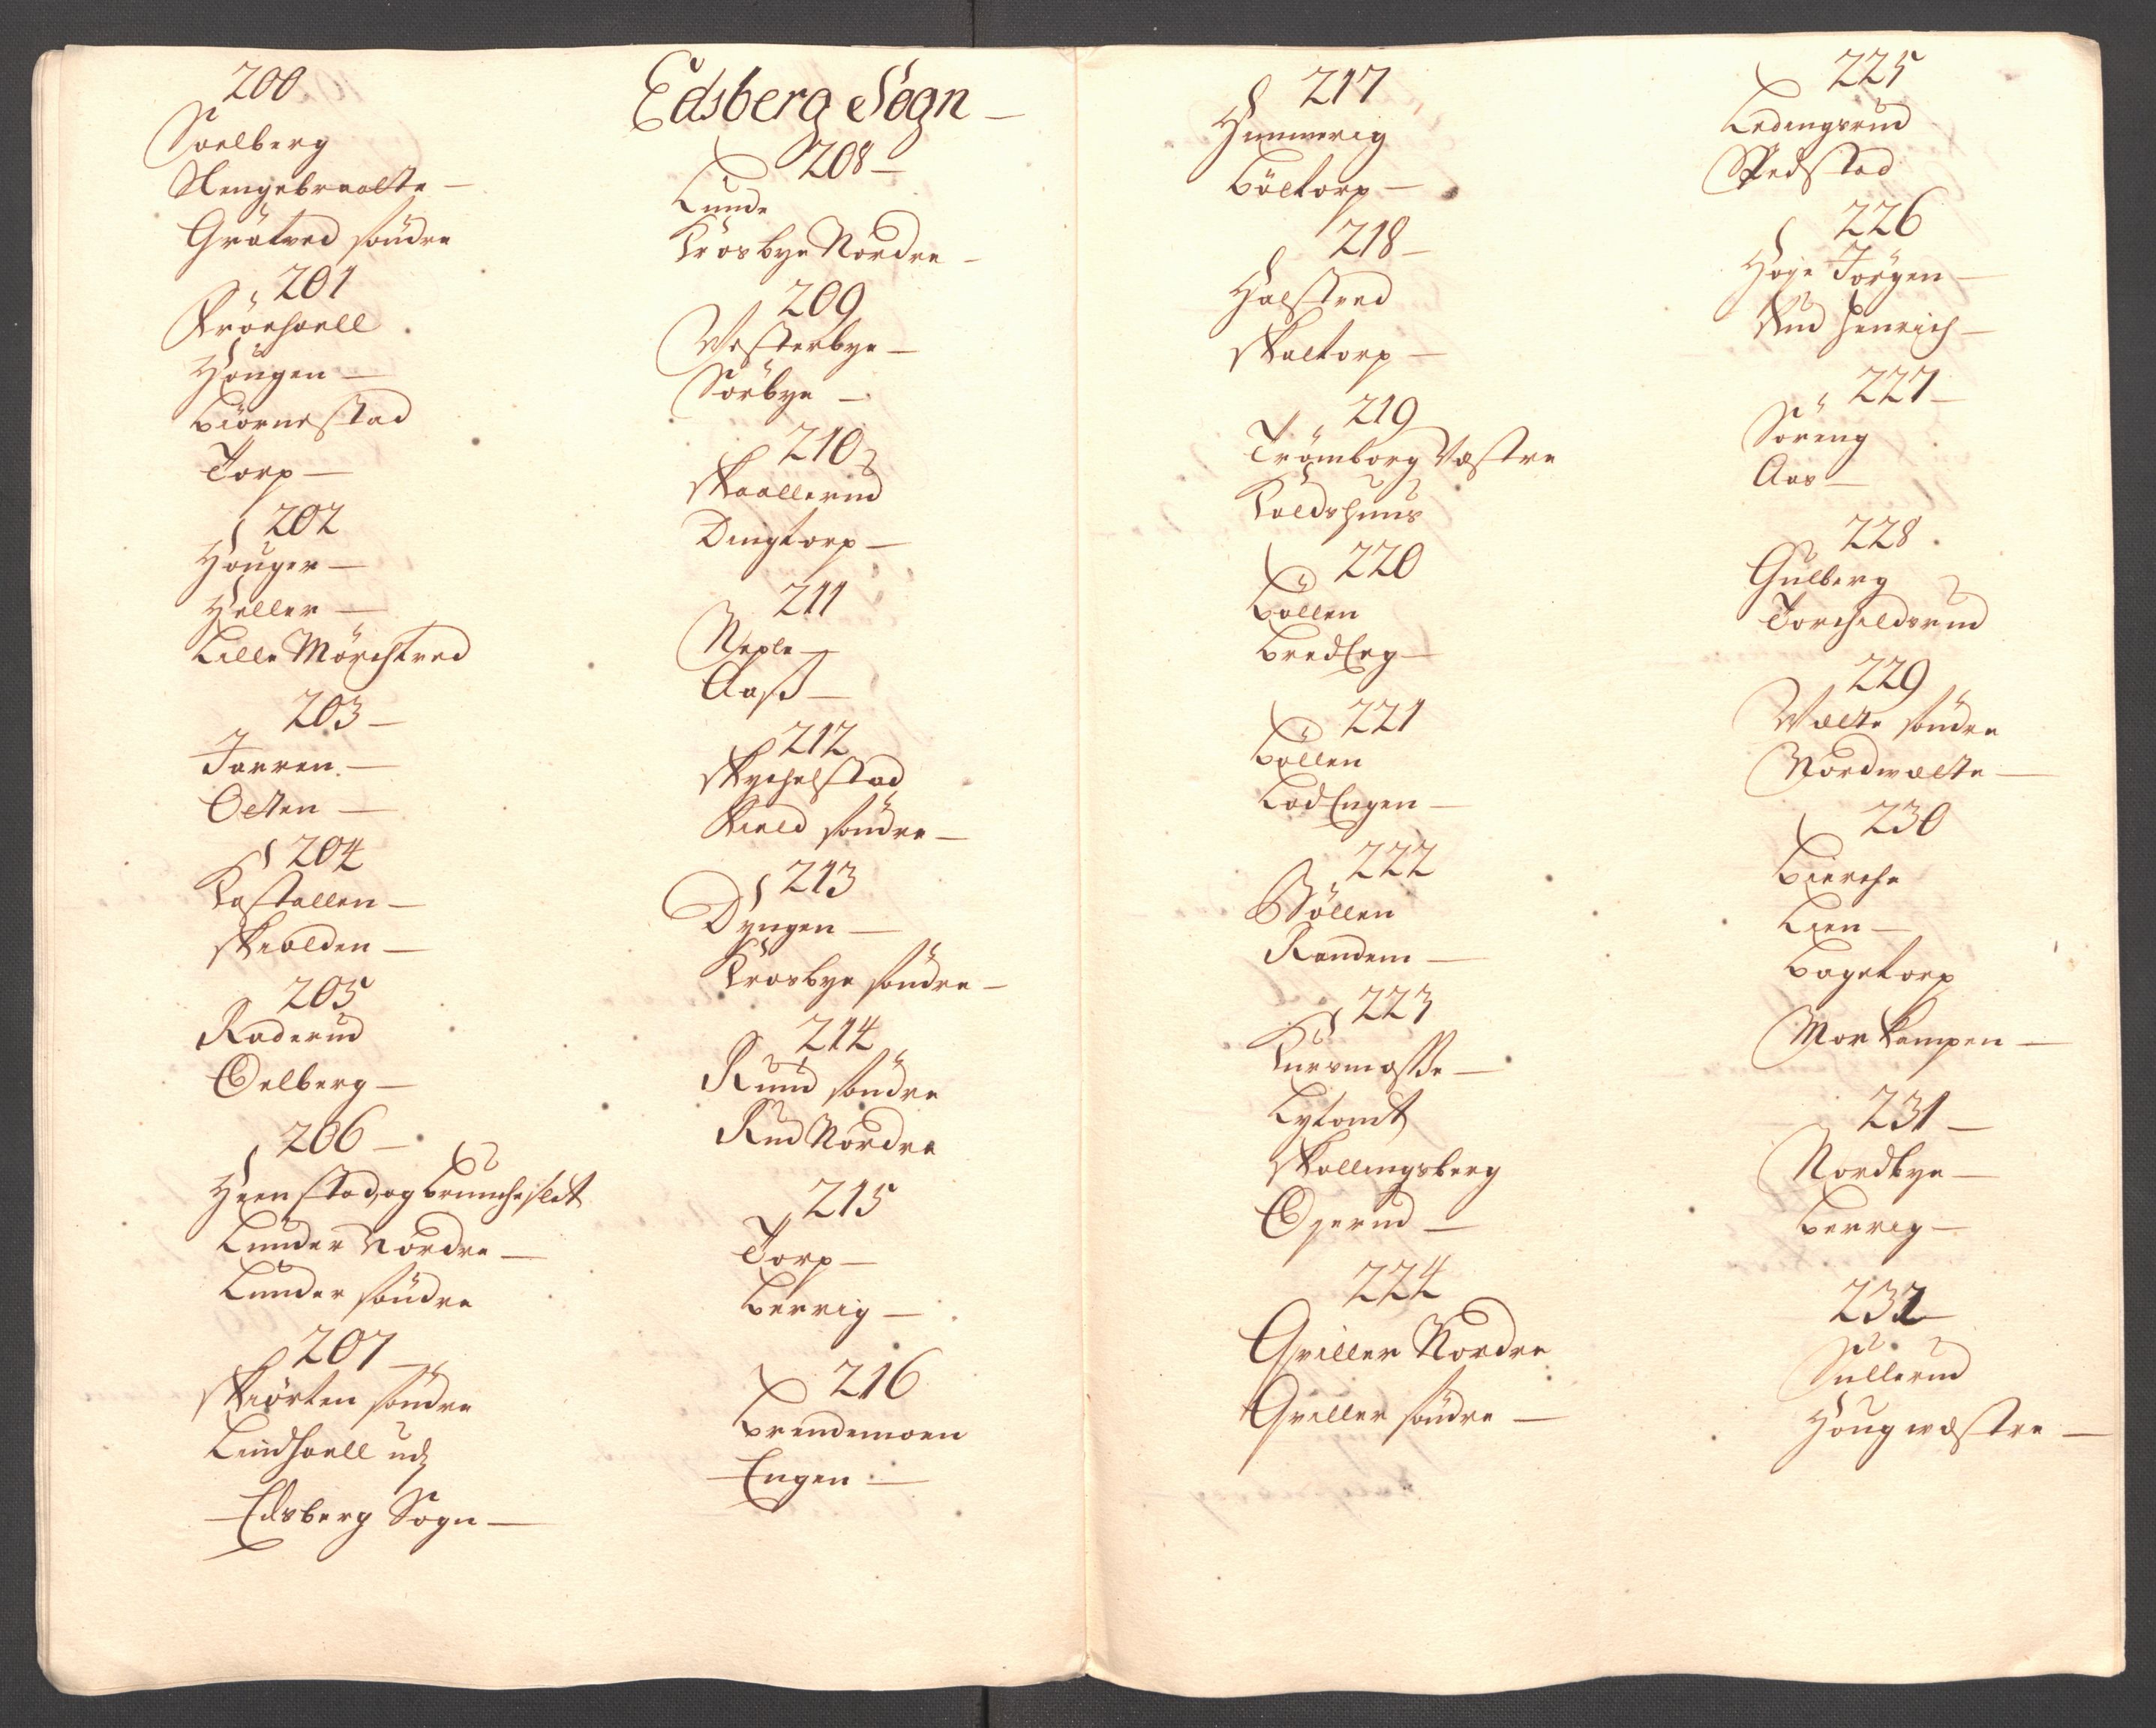 200
Soelberg
Slengebraatte
Gråtved søndre
201
Krøeshoell
Hougen
Biørnestad
Torp
202
Houger
Heller
Lille Mørchtved
203
Jarren
Oelten
204
Kastallen
Skiolden
205
Raderud
Oelberg
206
Heenstad, og Bruncheslet
Lunder Nordre
Lunder søndre
207
Skiørten søndre
Lindhoell udj
Edsberg Sogn
Edsberg Sogn
208
Lunde
Krosbye Nordre
209
Westerbye
Sørbye
210
Skaallerud
Dingtorp
211
Neple
Aaß
212
Skychelstad
Kield søndre
213
Dyngen
Krosbye søndre
214
Ruud søndre
Rud Nordre
215
Torp
Berrig
216
Brendemoen
Engen
217
Hummerig
Bøltorp
218
Halstved
Skaltorp
219
Trømborg Vestre
Koldshuus
220
Bøllen
BredEng
221
Bøllen
LadEngen
222
Bøllen
Randem
223
Kuesmosse
Lytomt
Skollingsberg
Operud
224
Griller Nordre
Griller søndre
225
Ledingsrud
Kedstad
226
Høje Jørgen
Rud Henrich
227
Søreng
Aas
228
Gulberg
Torchildsrud
229
Wælte søndre
Nordwælte
230
Bierche
Lien
Bagetorp
Morkampen
231
Nordbye
Berrig
232
Sullerud
Houg westre